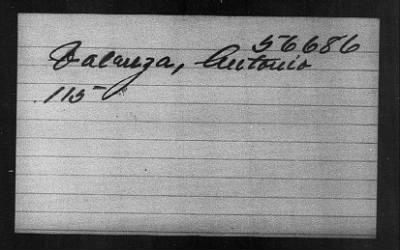 56686
Falanga, Antonio
115